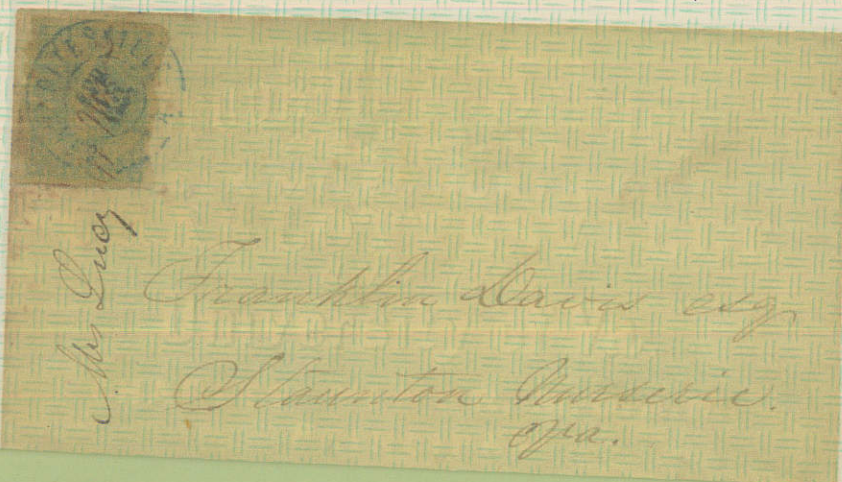 Mrs Lucy
Franklin Davis esq
Staunton Nurserie.
Va.